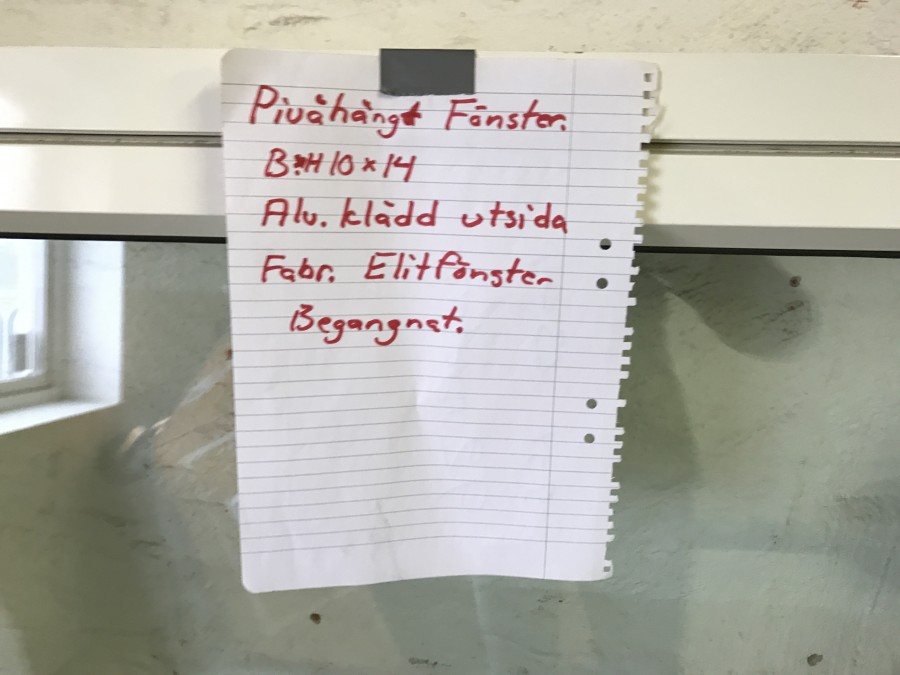 Pivåhängt Fönster.
B*H 10 x 14
Alu. klädd utsida
Fabr. Elitfönster
Begangnat.